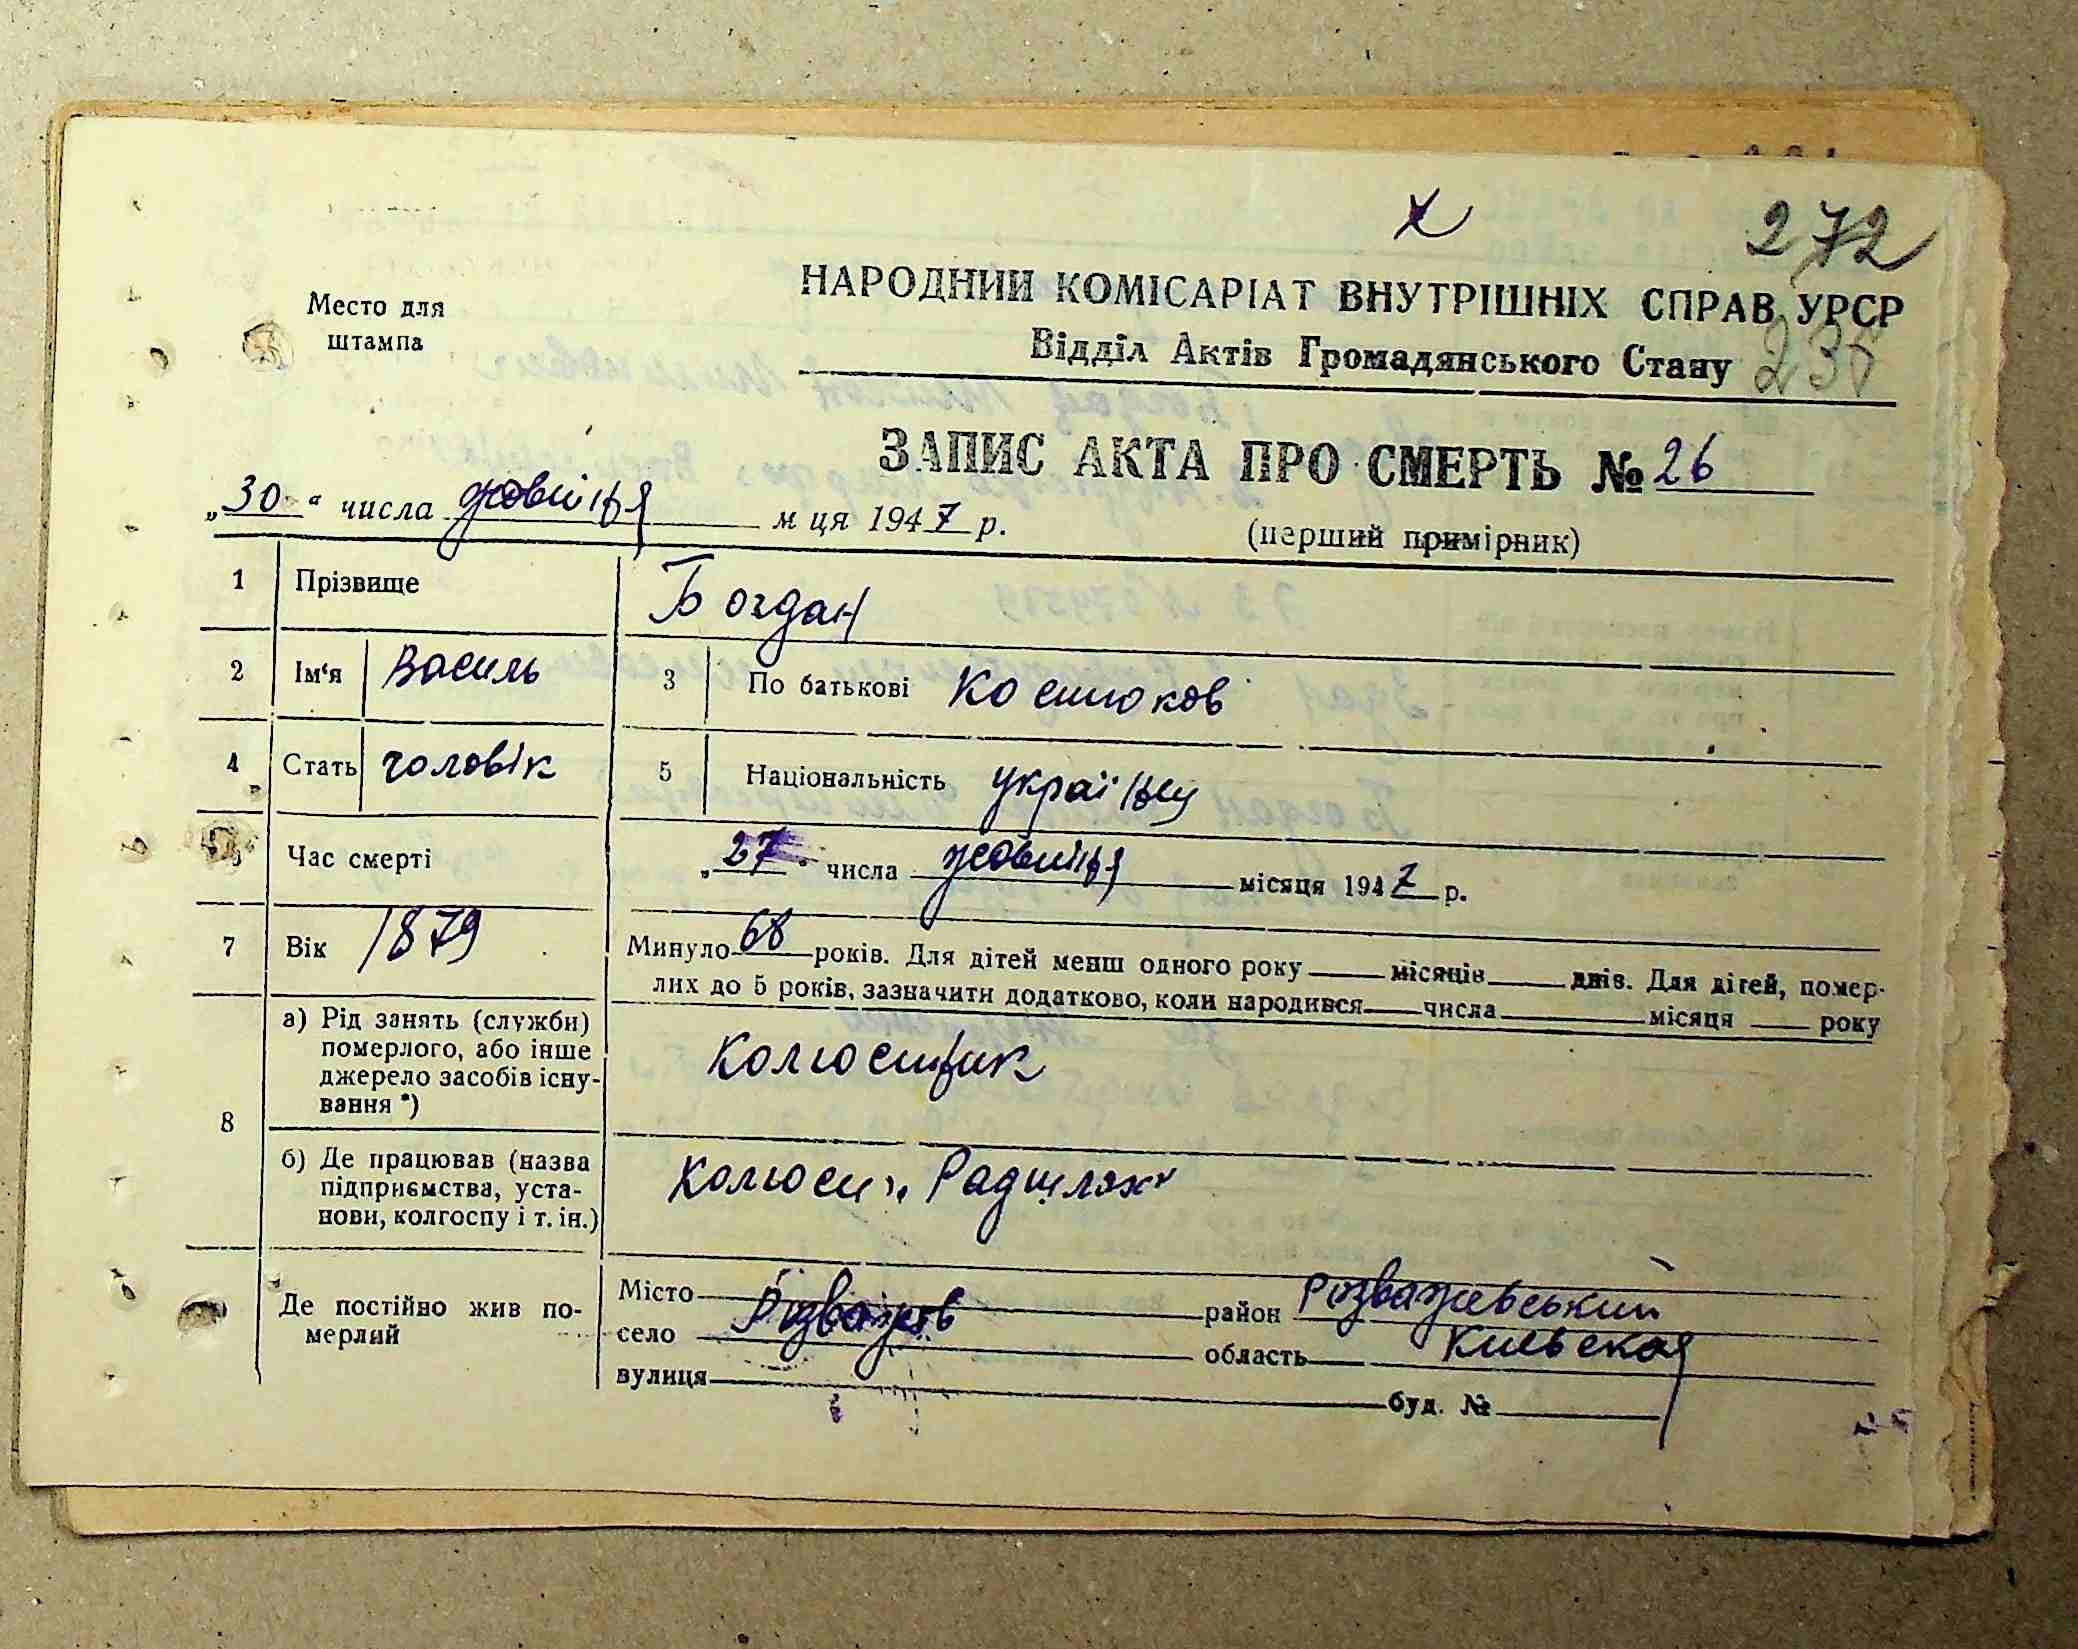 272
НАРОДНИЙ КОМІСАРІАТ ВНУТРІШНІХ СПРАВ УРСР
Место для
штампа
Відділ Актів Громадянського Стану 235
ЗАПИС АКТА ПРО СМЕРТЬ № 26
„30“ числа жовтня м ця 1947 р.
(перший примірник)
1 Прізвище Богдан
2 Ім'я Василь 3 По батькові Костюков
4 Стать чоловік 5 Національність українц
Час смерті „27“ числа жовтня місяця 1947 р.
7 Вік 1879 Минуло 68 років. Для дітей менш одного року місяців днів. Для дітей, помер-
лих до 5 років, зазначити додатково, коли народився числа місяця року
8 а) Рід занять (служби)
померлого, або інше
джерело засобів існу-
вання *)
Колгоспник
б) Де працював (назва
підприємства, уста-
нови, колгоспу і т. ін.)
Колгосп „Радшлях“
Де постійно жив по-
мерлий
Місто район Розважівський
село Розважів область Киевская
вулиця буд. №